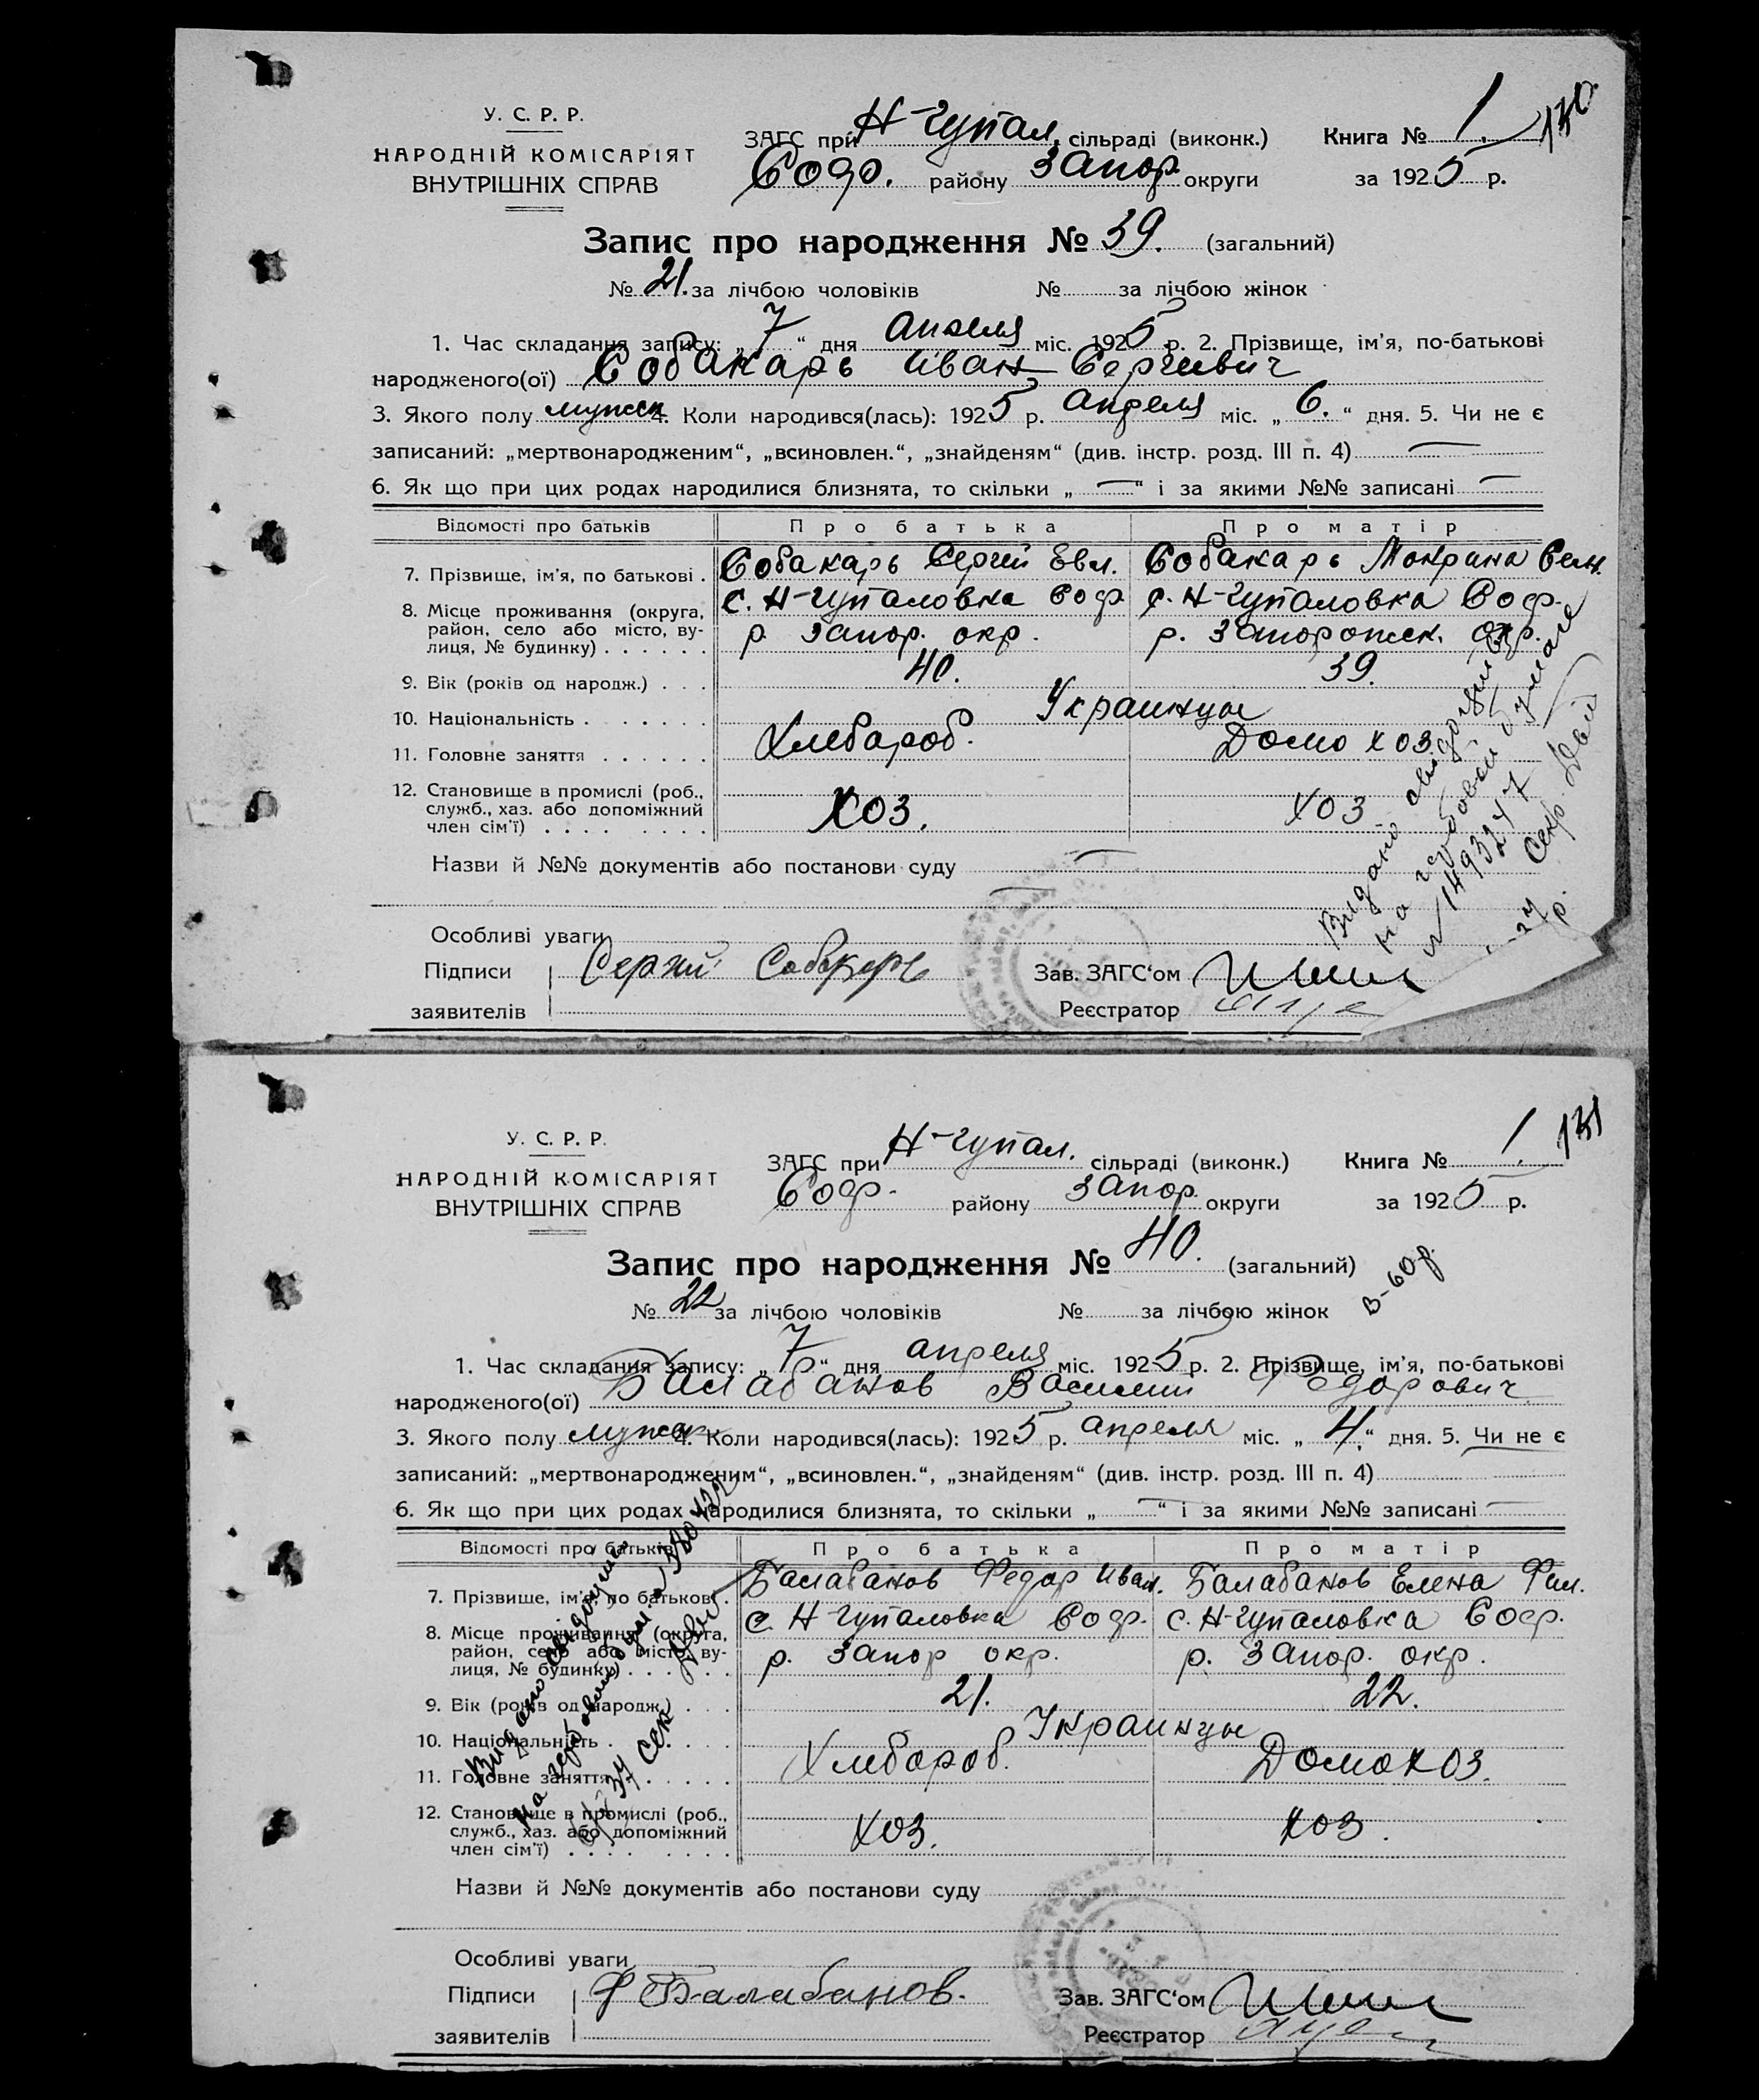 130
У. С. Р. Р.
НАРОДНІЙ КОМІСАРІЯТ
ВНУТРІШНІХ СПРАВ
ЗАГС при Н-Чупал. сільраді (виконк.) Книга № 1.
Соф. району Запор. округи за 1925 р.
Запис про народження № 39. (загальний)
№ 21. за лічбою чоловіків № за лічбою жінок
1. Час складання запису: „ 7 “ дня апреля міс. 1925 р. 2. Прізвище, ім’я, по-батькові
народженого(ої) Собакарь Иван Сергеевич
3. Якого полу мужск 4. Коли народився(лась): 1925 р. апреля міс. „ 6. “ дня. 5. Чи не є
записаний: „мертвонародженим“, „всиновлен.“, „знайденям“ (див. інстр. розд. III п. 4) —
6. Як що при цих родах народилися близнята, то скільки „ — “ і за якими №№ записані —
Відомості про батьків Про батька Про матір
7. Прізвище, ім’я, по батькові . Собакарь Сергей Евл. Собакарь Макрина Сем.
8. Місце проживання (округа, с. Н-Чупаловка Соф с. Н-Чупаловка Соф.
район, село або місто, ву- р. Запор. окр. р. Запорожск. окр.
лиця, № будинку) . . . . . .
9. Вік (років од народж.) . . . 40. 39.
10. Національність . . . . . . Украинцы
11. Головне заняття . . . . . . Хлебароб. Домохоз.
12. Становище в промислі (роб.,
служб., хаз. або допоміжний Хоз. Хоз
член сім’ї) . . . . . . . .
Назви й №№ документів або постанови суду —
Видано свидоцтво
на гербовой бумаге
№ 1493247
Секр.
Особливі уваги
Підписи Сергий Собакарь Зав. ЗАГС‘ом
заявителів Реєстратор
131
У. С. Р. Р.
НАРОДНІЙ КОМІСАРІЯТ
ВНУТРІШНІХ СПРАВ
ЗАГС при Н-Чупал. сільраді (виконк.) Книга № 1.
Соф. району Запор. округи за 1925 р.
Запис про народження № 40. (загальний)
№ 22 за лічбою чоловіків № за лічбою жінок
1. Час складання запису: „ 7 “ дня апреля міс. 1925 р. 2. Прізвище, ім’я, по-батькові
народженого(ої) Балабанов Василий Федорович
3. Якого полу мужск 4. Коли народився(лась): 1925 р. апреля міс. „ 4. “ дня. 5. Чи не є
записаний: „мертвонародженим“, „всиновлен.“, „знайденям“ (див. інстр. розд. III п. 4)
6. Як що при цих родах народилися близнята, то скільки „ — “ і за якими №№ записані —
Відомості про батьків Про батька Про матір
7. Прізвище, ім’я, по батькові . Балабанов Федор Иван. Балабанов Елена Фил.
8. Місце проживання (округа, с. Н Чупаловка Соф. с. Н-Чупаловка Соф.
район, село або місто, ву- р. Запор окр. р. Запор. окр.
лиця, № будинку) . . . . . .
9. Вік (років од народж.) . . . 21. 22.
10. Національність . . . . . . Украинцы
11. Головне заняття . . . . . . Хлебороб. Домохоз.
12. Становище в промислі (роб.,
служб., хаз. або допоміжний Хоз. Хоз.
член сім’ї) . . . . . . . .
Назви й №№ документів або постанови суду
Особливі уваги
Підписи Ф Балабанов. Зав. ЗАГС‘ом
заявителів Реєстратор